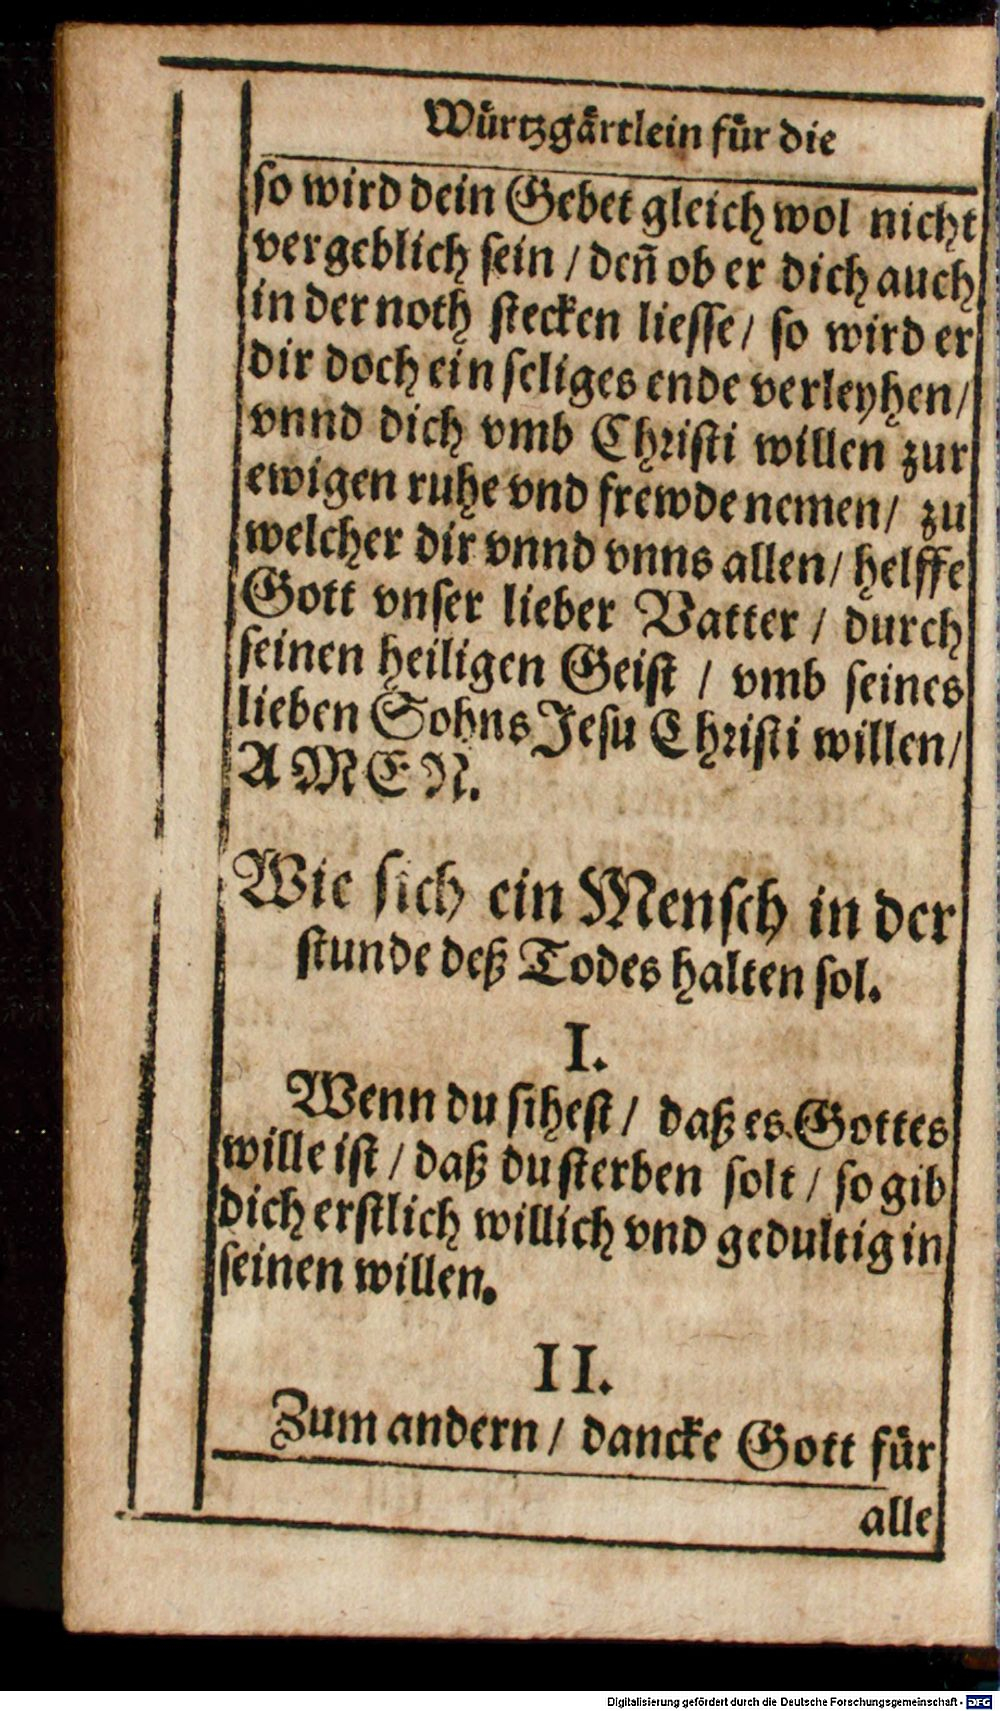 Wuͤrtzgaͤrtlein fuͤr die
ſo wird dein Gebet gleich wol nicht
vergeblich ſein / deñ ob er dich auch
in der noth ſtecken lieſſe / ſo wird er
dir doch ein ſeliges ende verleyhen /
vnnd dich vmb Chriſti willen zur
ewigen ruhe vnd frewde nemen / zu
welcher dir vnnd vnns allen / helffe
Gott vnſer lieber Vatter / durch
ſeinen heiligen Geiſt / vmb ſeines
lieben Sohns Jeſu Chriſti willen /
AMEN.
Wie ſich ein Menſch in der
ſtunde deß Todes halten ſol.
I.
Wenn du ſiheſt / daß es Gottes
wille iſt / daß du ſterben ſolt / ſo gib
dich erſtlich willich vnd gedultig in
ſeinen willen.
II.
Zum andern / dancke Gott fuͤr
alle
Digitalisierung gefördert durch die Deutsche Forschungsgemeinschaft - DFG